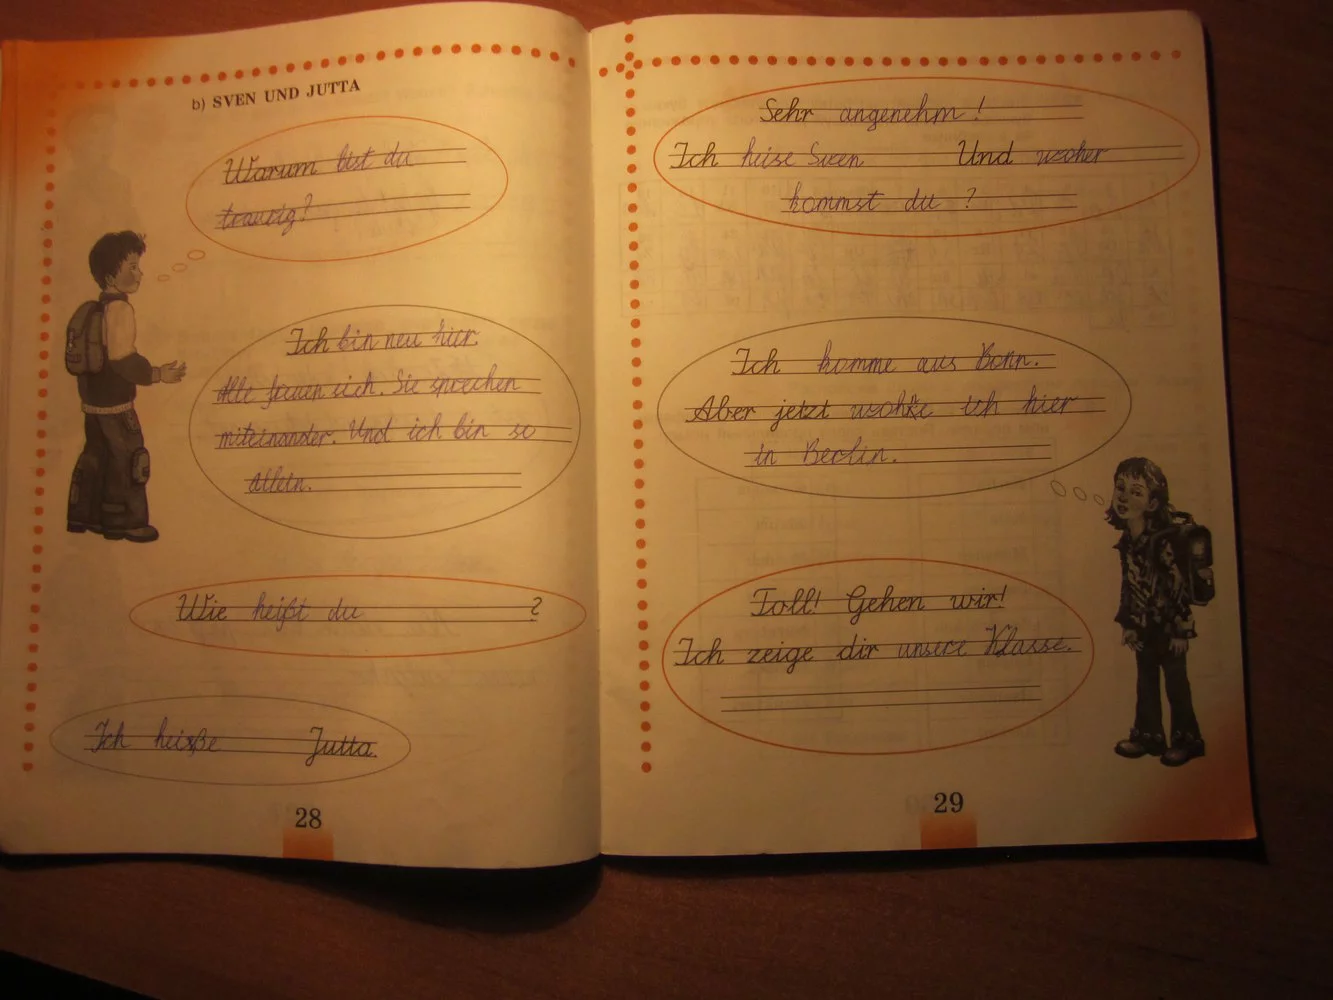 b) SVEN UND JUTTA
Warum bist du
traurig?
Ich bin neu hier.
Alle freuen sich. Sie sprechen
miteinander. Und ich bin so
allein.
Wie heißt du ?
Ich heiße Jutta.
28
Sehr angenehm!
Ich heise Sven Und woher
kommst du ?
Ich komme aus Bonn.
Aber jetzt wohne ich hier
in Berlin.
Toll! Gehen wir!
Ich zeige dir unsere Klasse.
29